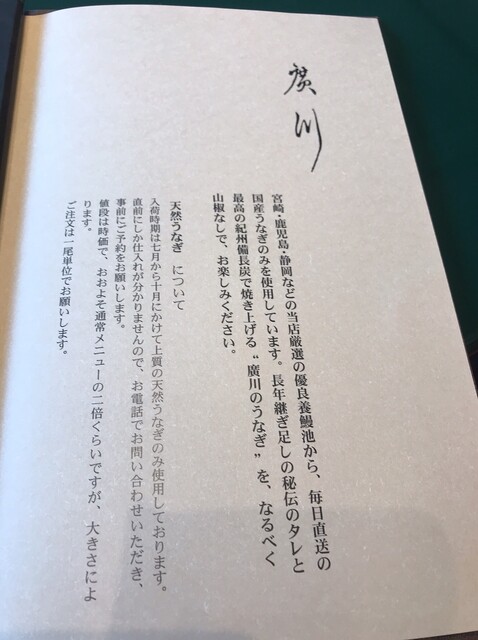 廣川
宮崎・鹿児島・静岡などの当店厳選の優良養鰻池から、毎日直送の
国産うなぎのみを使用しています。長年継ぎ足しの秘伝のタレと
最高の紀州備長炭で焼き上げる“廣川のうなぎ”を、なるべく
山椒なしで、お楽しみください。
天然うなぎ について
入荷時期は七月から十月にかけて上質の天然うなぎのみ使用しております。
直前にしか仕入れが分かりませんので、お電話でお問い合わせいただき、
事前にご予約をお願いします。
値段は時価で、おおよそ通常メニューの二倍くらいですが、大きさによ
ります。
ご注文は一尾単位でお願いします。